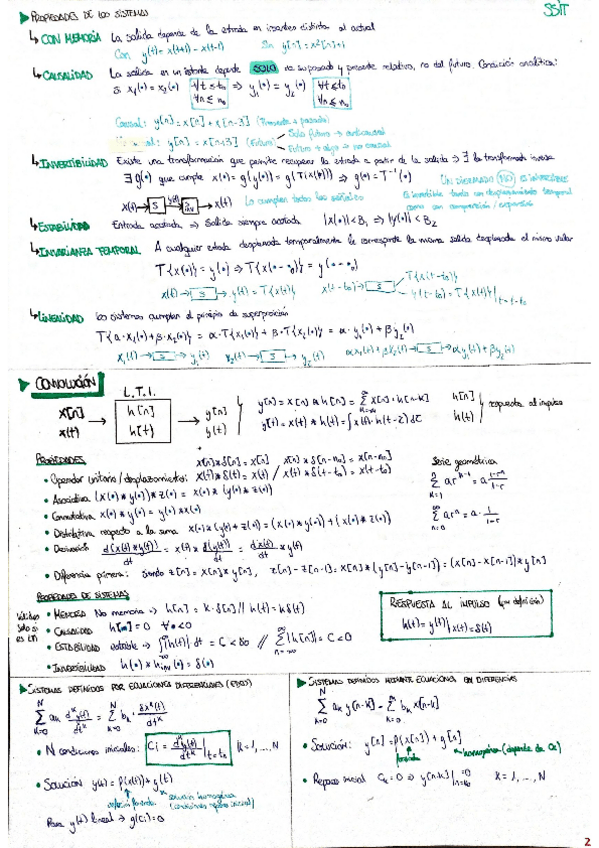 SSIT
PROPIEDADES DE LOS SISTEMAS
CON MEMORIA La salida depende de la entrada en instantes distintos al actual
Con y(t) = x(t+1) - x(t-1) Sin y[n] = x²[n]+1
CAUSALIDAD La salida en un instante depende SOLO de su pasado y presente relativos, no del futuro. Condición analítica:
si x₁(•) = x₂(•) ∀t ≤ t₀ ⇒ y₁(•) = y₂(•) ∀t ≤ t₀
∀n ≤ n₀ ∀n ≤ n₀
Causal: y[n] = x[n] + x[n-3] (Presente + pasado)
causal: y[n] = x[n+3] (Futuro) Solo futuro → anticausal
Futuro + algo → no causal
INVERTIBILIDAD Existe una transformación que permite recuperar la entrada a partir de la salida ⇒ ∃ la transformada inversa
∃ g(•) que cumple x(•) = g(y(•)) = g(T(x(•))) ⇒ g(•) = T⁻¹(•)
UN DIEZMADO NO ES INVERTIBLE
x(t) → S → y(t) → INV → x(t) Lo cumplen todas las señales
Es invertible tanto un desplazamiento temporal
como una compresión/expansión
ESTABILIDAD Entrada acotada ⇒ Salida siempre acotada |x(•)| < B₁ ⇒ |y(•)| < B₂
INVARIANZA TEMPORAL A cualquier entrada desplazada temporalmente le corresponde la misma salida desplazada el mismo valor
T{x(•)} = y(•) ⇒ T{x(• - •₀)} = y(• - •₀)
x(t) → S → y(t) = T{x(t)} x(t-t₀) → S → T{x(t-t₀)}
y(t-t₀) = T{x(t)}|t=t-t₀
LINEALIDAD Los sistemas cumplen el principio de superposición
T{α·x₁(•) + β·x₂(•)} = α·T{x₁(•)} + β·T{x₂(•)} = α·y₁(•) + β·y₂(•)
x₁(t) → S → y₁(t) x₂(t) → S → y₂(t) αx₁(t) + βx₂(t) → S → αy₁(t) + βy₂(t)
CONVOLUCIÓN
L.T.I.
x[n] h[n] y[n] y[n] = x[n] * h[n] = Σ x[n]·h[n-k] h[n]
x(t) h(t) y(t) y(t) = x(t) * h(t) = ∫x(τ)·h(t-τ)dτ h(t) respuesta al impulso
PROPIEDADES x[n]*δ[n] = x[n] x[n]*δ[n-n₀] = x[n-n₀]
Serie geométrica
• Operador unitario/desplazamiento: x(t)*δ(t) = x(t) / x(t)*δ(t-t₀) = x(t-t₀)
• Asociativa (x(•)*y(•))*z(•) = x(•)*(y(•)*z(•))
• Conmutativa x(•)*y(•) = y(•)*x(•)
• Distributiva respecto a la suma x(•)*(y(•)+z(•)) = (x(•)*y(•))+(x(•)*z(•))
• Derivación d(x(t)*y(t))/dt = x(t)*d(y(t))/dt = dx(t)/dt*y(t)
• Diferencia primera: siendo z[n] = x[n]*y[n], z[n]-z[n-1] = x[n]*(y[n]-y[n-1]) = (x[n]-x[n-1])*y[n]
PROPIEDADES DE SISTEMAS
Válidas solo si es LTI
• MEMORIA No memoria ⇒ h[n] = k·δ[n] // h(t) = kδ(t)
• CAUSALIDAD h[•] = 0 ∀•<0
• ESTABILIDAD estable ⇒ ∫|h(t)|dt = C < ∞ // Σ|h[n]| = C < ∞
• INVERTIBILIDAD h(•)*h_inv(•) = δ(•)
RESPUESTA AL IMPULSO (por definición)
h(t) = y(t)|x(t)=δ(t)
SISTEMAS DEFINIDOS POR ECUACIONES DIFERENCIALES
• N condiciones iniciales: Cᵢ = dᵏy(t)/dtᵏ |t=t₀ k = 1, ..., N
• Solución y(t) = f(x(t)) + g(t)
solución forzada
solución homogénea
Para y(t) lineal → g(Cᵢ) = 0
SISTEMAS DEFINIDOS MEDIANTE ECUACIONES EN DIFERENCIAS
Σ aₖ y[n-k] = Σ bₖ x[n-k]
• Solución: y[n] = f(x[n]) + g[n]
forzada
homogénea (depende de Cₖ)
• Reposo inicial Cₖ = 0 ⇒ y[n-k]|n=n₀ = 0 k = 1, ..., N
2